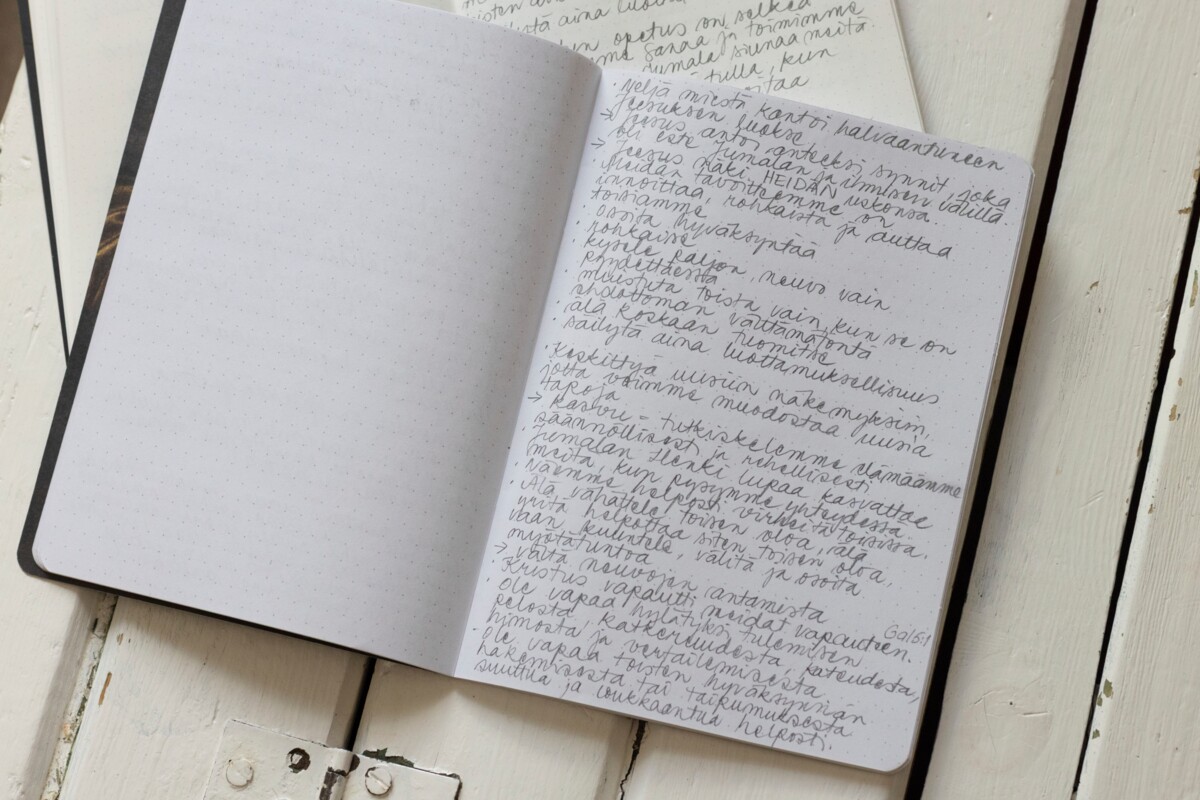 opetus on selkeä
Sanaa ja toimimme
Jumala siunaa meitä
tulla, kun
· Neljä miestä kantoi halvaantuneen
Jeesuksen luokse
→ Jeesus antoi anteeksi synnit, joka
oli este Jumalan ja ihmisen välillä.
→ Jeesus näki HEIDÄN uskonsa.
· Meidän tavoitteemme on
innoittaa, rohkaista ja auttaa
toisiamme
· osoita hyväksyntää
· rohkaise
· kysele paljon, neuvo vain
pyydettäessä
· muistuta toista vain, kun se on
ehdottoman välttämätöntä
· älä koskaan tuomitse
· säilytä aina luottamuksellisuus
· Keskittyä uusiin näkemyksiin,
jotta voimme muodostaa uusia
tapoja
→ kasvu = tutkiskelemme elämäämme
säännöllisesti ja rehellisesti
· Jumalan Henki lupaa kasvattaa
meitä, kun pysymme yhteydessä.
· Näemme helposti virheitä toisissa.
· Älä vähättele toisen oloa, älä
yritä helpottaa siten toisen oloa,
vaan kuuntele, välitä ja osoita
myötätuntoa
→ vältä neuvojen antamista
· Kristus vapautti meidät vapauteen. Gal 5:1
· ole vapaa hylätyksi tulemisen
pelosta, katkeruudesta, kateudesta,
himosta ja vertailemisesta
· ole vapaa toisten hyväksynnän
hakemisesta tai taipumuksesta
suuttua ja loukkaantua helposti.